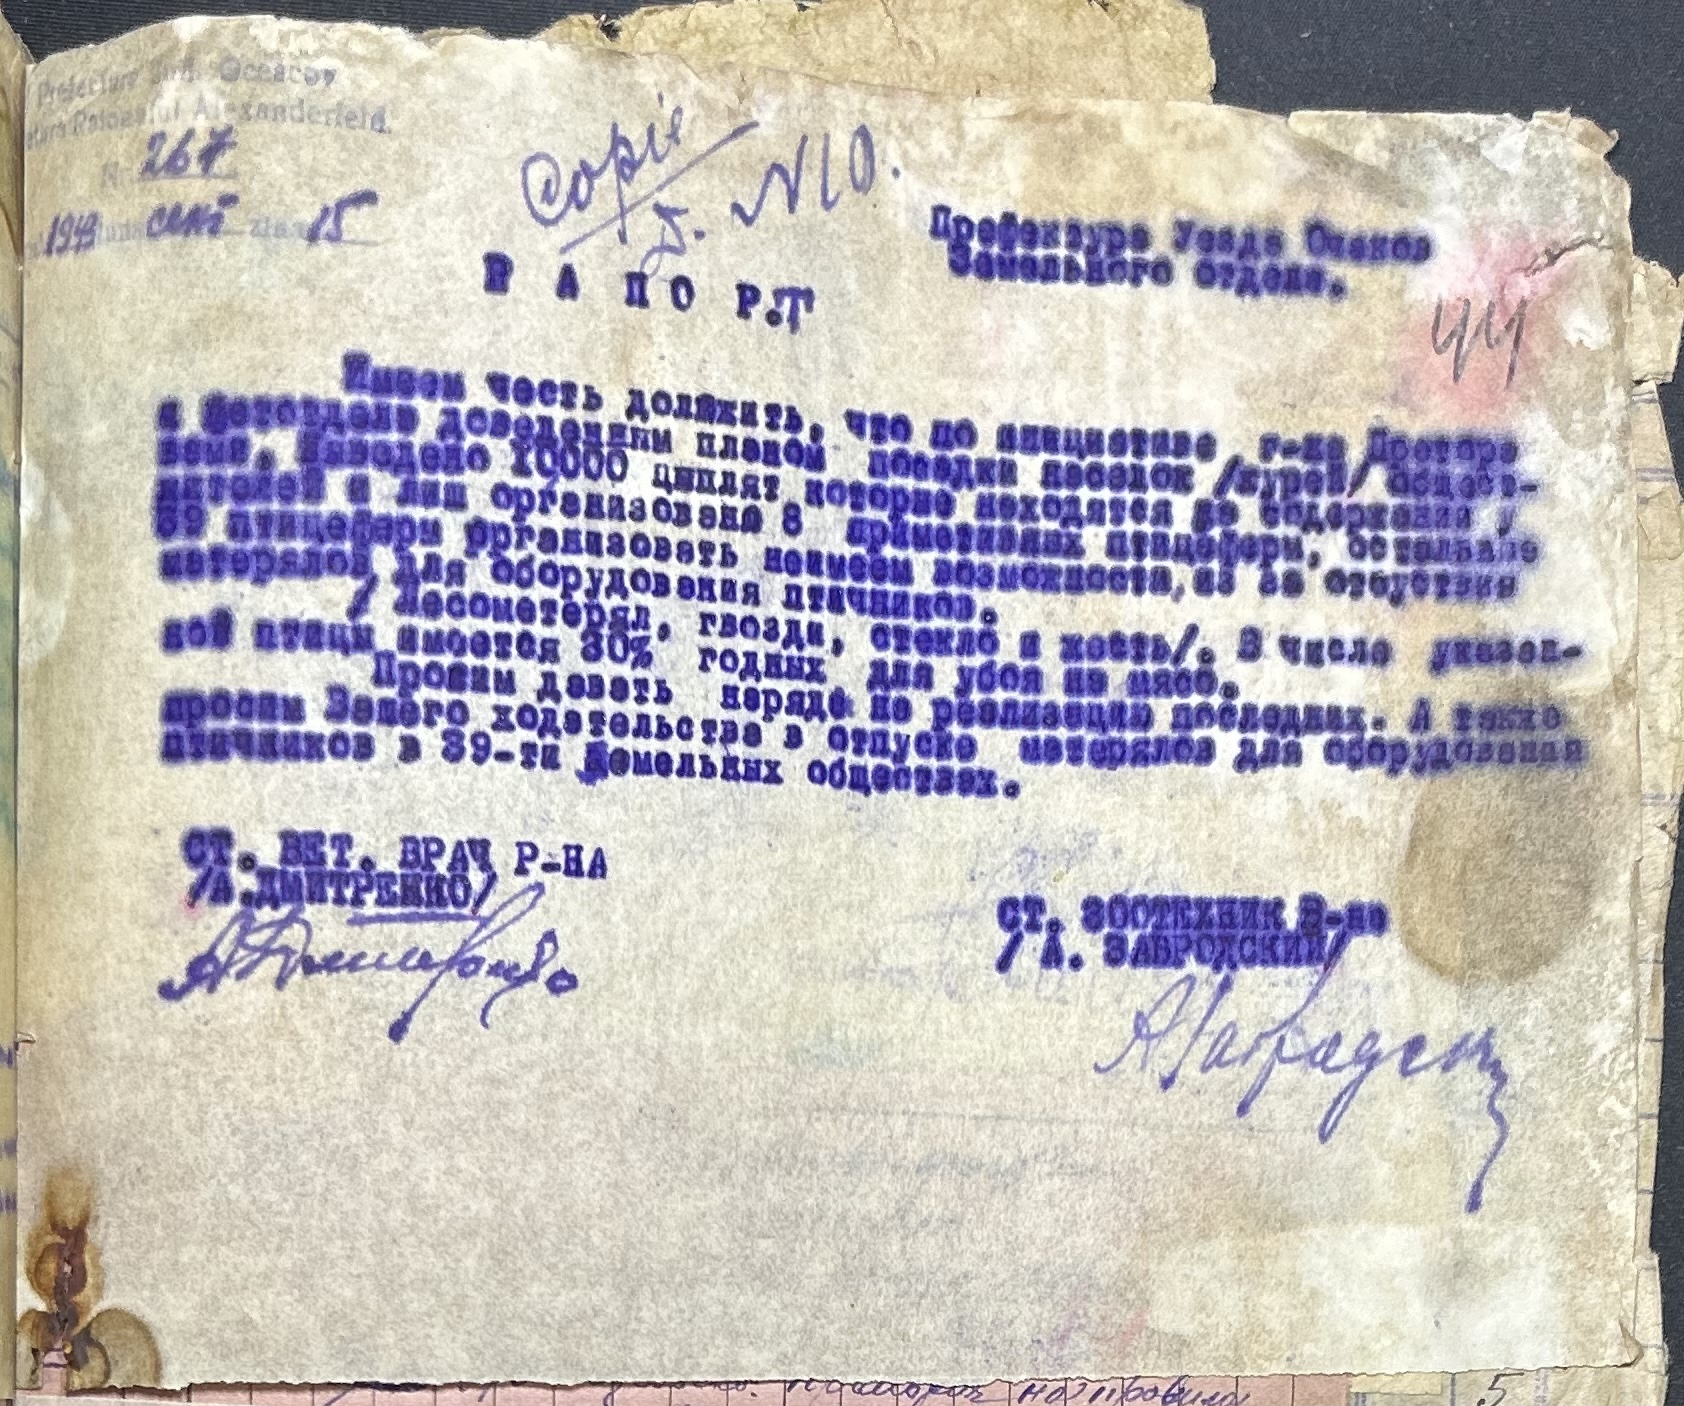 Prefectura Jud. Oceacov
Pretura Raionului Alexanderfeld.
N 267
1943 luna сент ziua 15
Copie
D. N10.
Префектура Уезда Очаков
Земельного отдела.
44
Р А П О Р.Т
Имеем честь должить, что по инициативе г-на Претора
и доведенным планом посадки наседок /курей/
Выведено 10000 цыплят которые находятся на содержании у
и лиш организовано 8 приметивных птицеферм, остальные
39 птицеферм организовать неимеем возможности, из за отсуствия
матерялов для оборудования птичников.
/ Лесоматерял, гвозди, стекло и жесть/. В число указан-
ной птицы имеется 30% годных для убоя на мясо.
Просим давать наряда по реализации последних. А также
просим Вашего ходательства в отпуске матерялов для оборудования
птичников в 39-ти Земельных обществах.
СТ. ВЕТ. ВРАЧ Р-НА
/А.ДМИТРЕНКО/
СТ. ЗООТЕХНИК Р-на
/ А. ЗАВРОДСКИЙ/
5